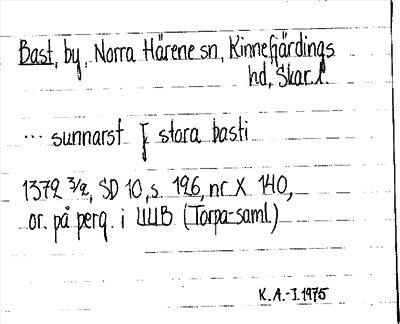 Bast, by, Norra Härene sn, Kinnefjärdings
hd, Skar. l.
... sunnarst j stora basti
1379 3/2, SD 10, s. 196, nr X 140,
or. på perg. i UUB (Torpa-saml.)
K.A.-J. 1975